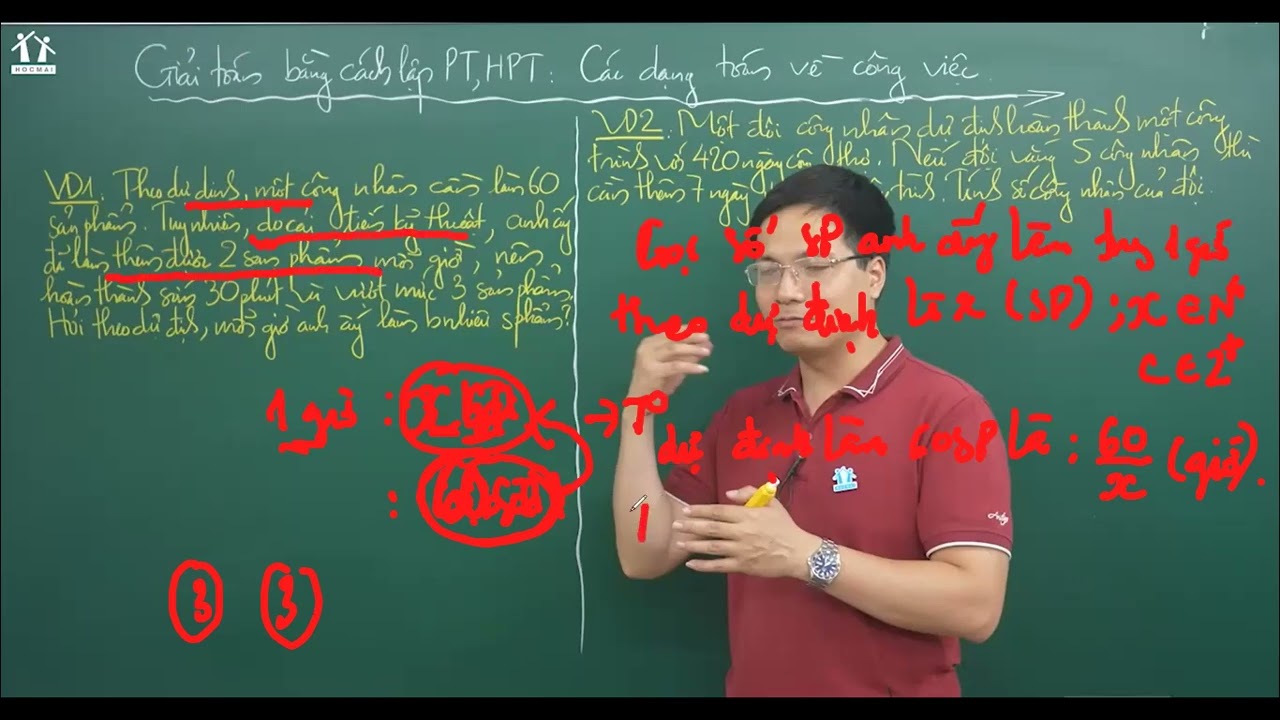 HOCMAI
Giải toán bằng cách lập PT, HPT: Các dạng toán về công việc.
VD1: Theo dự định, một công nhân cần làm 60
sản phẩm. Tuy nhiên, do cải tiến kỹ thuật, anh ấy
đã làm thêm được 2 sản phẩm mỗi giờ, nên
hoàn thành sớm 30 phút và vượt mức 3 sản phẩm.
Hỏi theo dự định, mỗi giờ anh ấy làm bnhiêu sphẩm?
VD2: Một đội công nhân dự định hoàn thành một công
trình với 420 ngày công thợ. Nếu đội vắng 5 công nhân thì
cần thêm 7 ngày trình. Tính số công nhân của đội.
Gọi số SP anh ấy làm 1 giờ
theo dự định là x (SP); x ∈ N*
∈ Z+
1 giờ : x
→ T°
dự định làm 60SP là : 60/x (giờ).
:
1
3 3